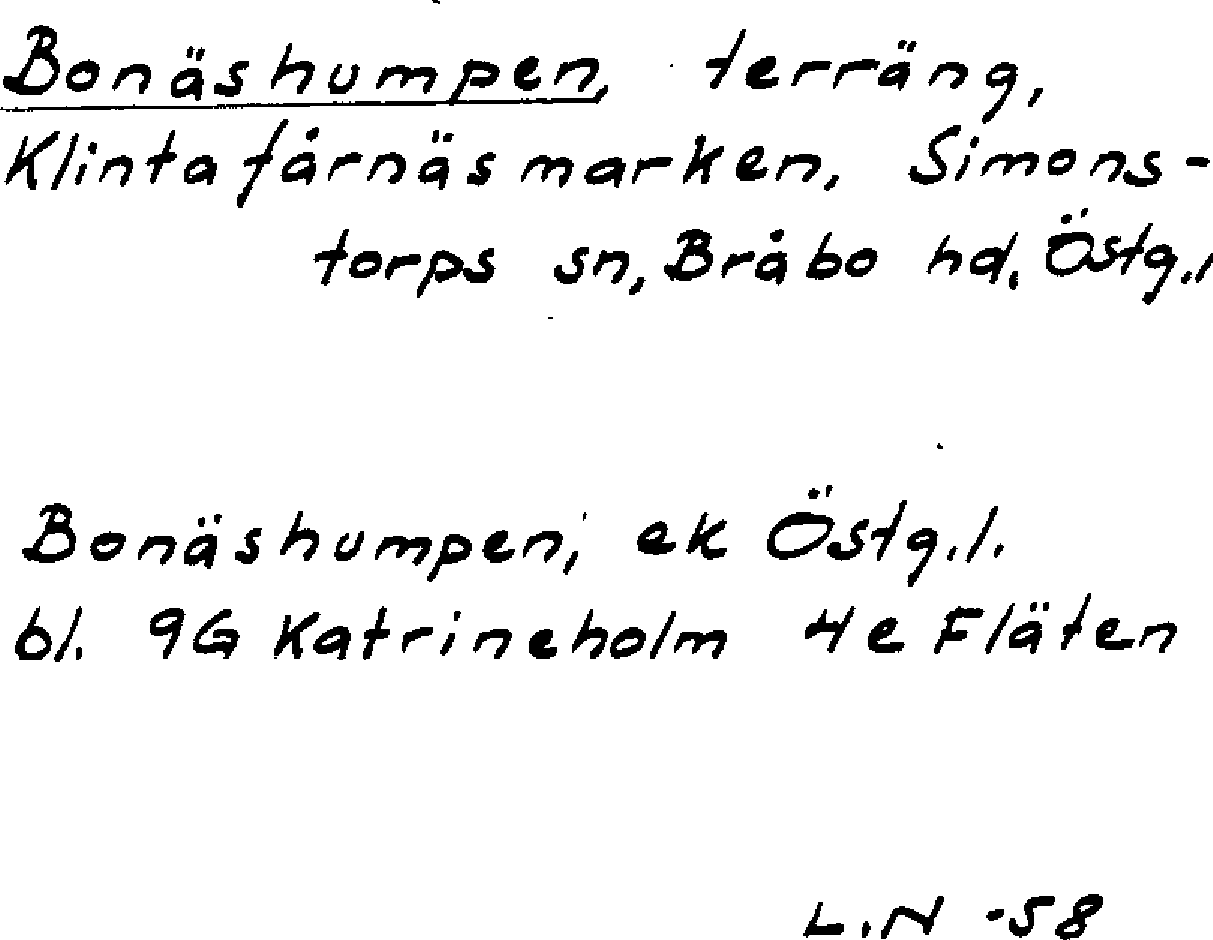 Bonäshumpen, terräng,
Klintafårnäsmarken, Simons-
torps sn, Bråbo hd, Östg.l
Bonäshumpen, ek Östg.l.
bl. 9G Katrineholm 4e Fläten
L.N -58